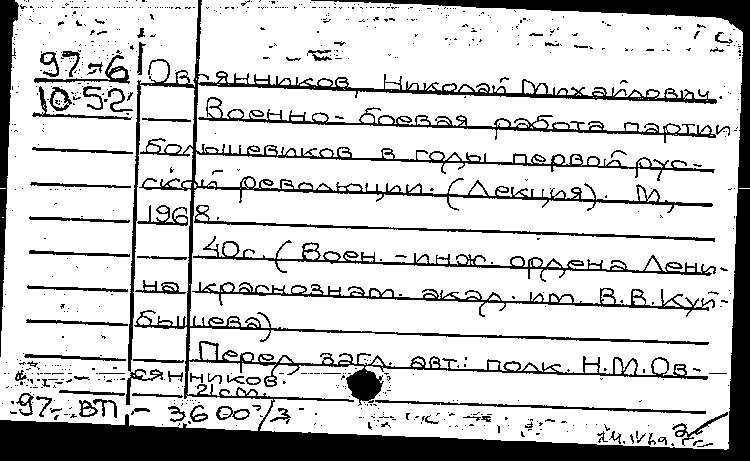 97-6
10-52
Овсянников, Николай Михайлович.
Военно-боевая работа партии
большевиков в годы первой рус-
ской революции. (Лекция). М.,
1968.
40с. (Воен.-инж. ордена Лени-
на краснознам. акад. им. В.В.Куй-
бышева).
Перед загл. авт.: полк. Н.М.Ов-
сянников.
21см.
97-ВП-3600/3